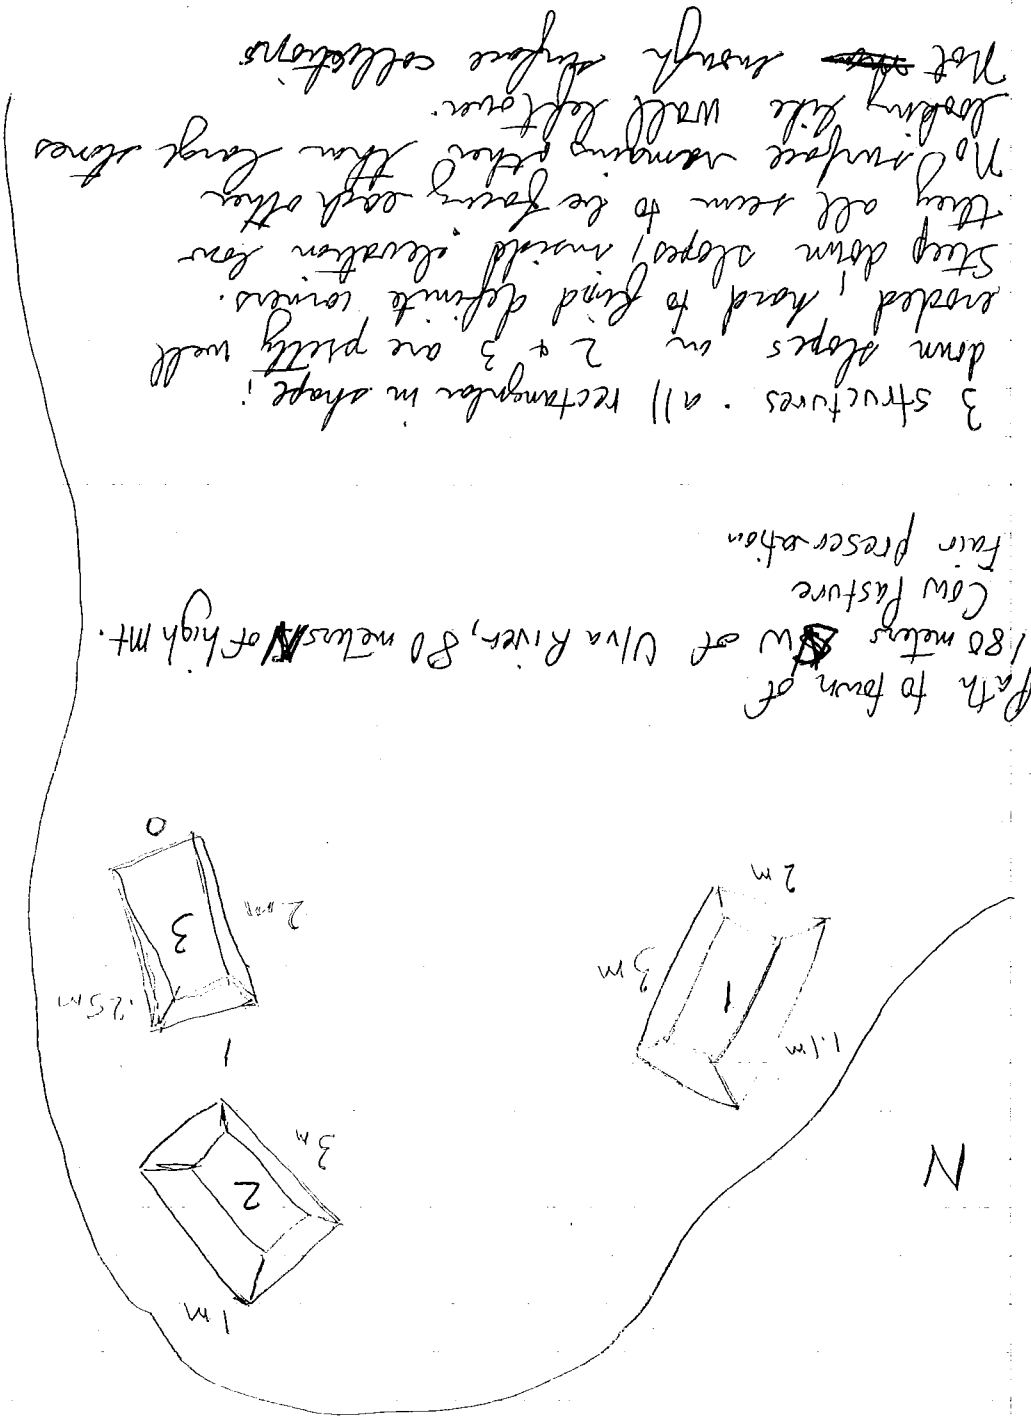 N
1m
2
3m
1
1.1m
1
3m
2m
.25m
3
2m
0
Path to town of
180 meters W of Ulva River, 80 meters N of high Mt.
Cow Pasture
Fair preservation
3 structures: all rectangular in shape;
down slopes on 2 & 3 are pretty well
eroded, hard to find definite corners.
Steep down slopes, inside elevation low
they all seem to be facing each other
No surface remains other than large stones
looking like wall leftover.
Not enough surface collections